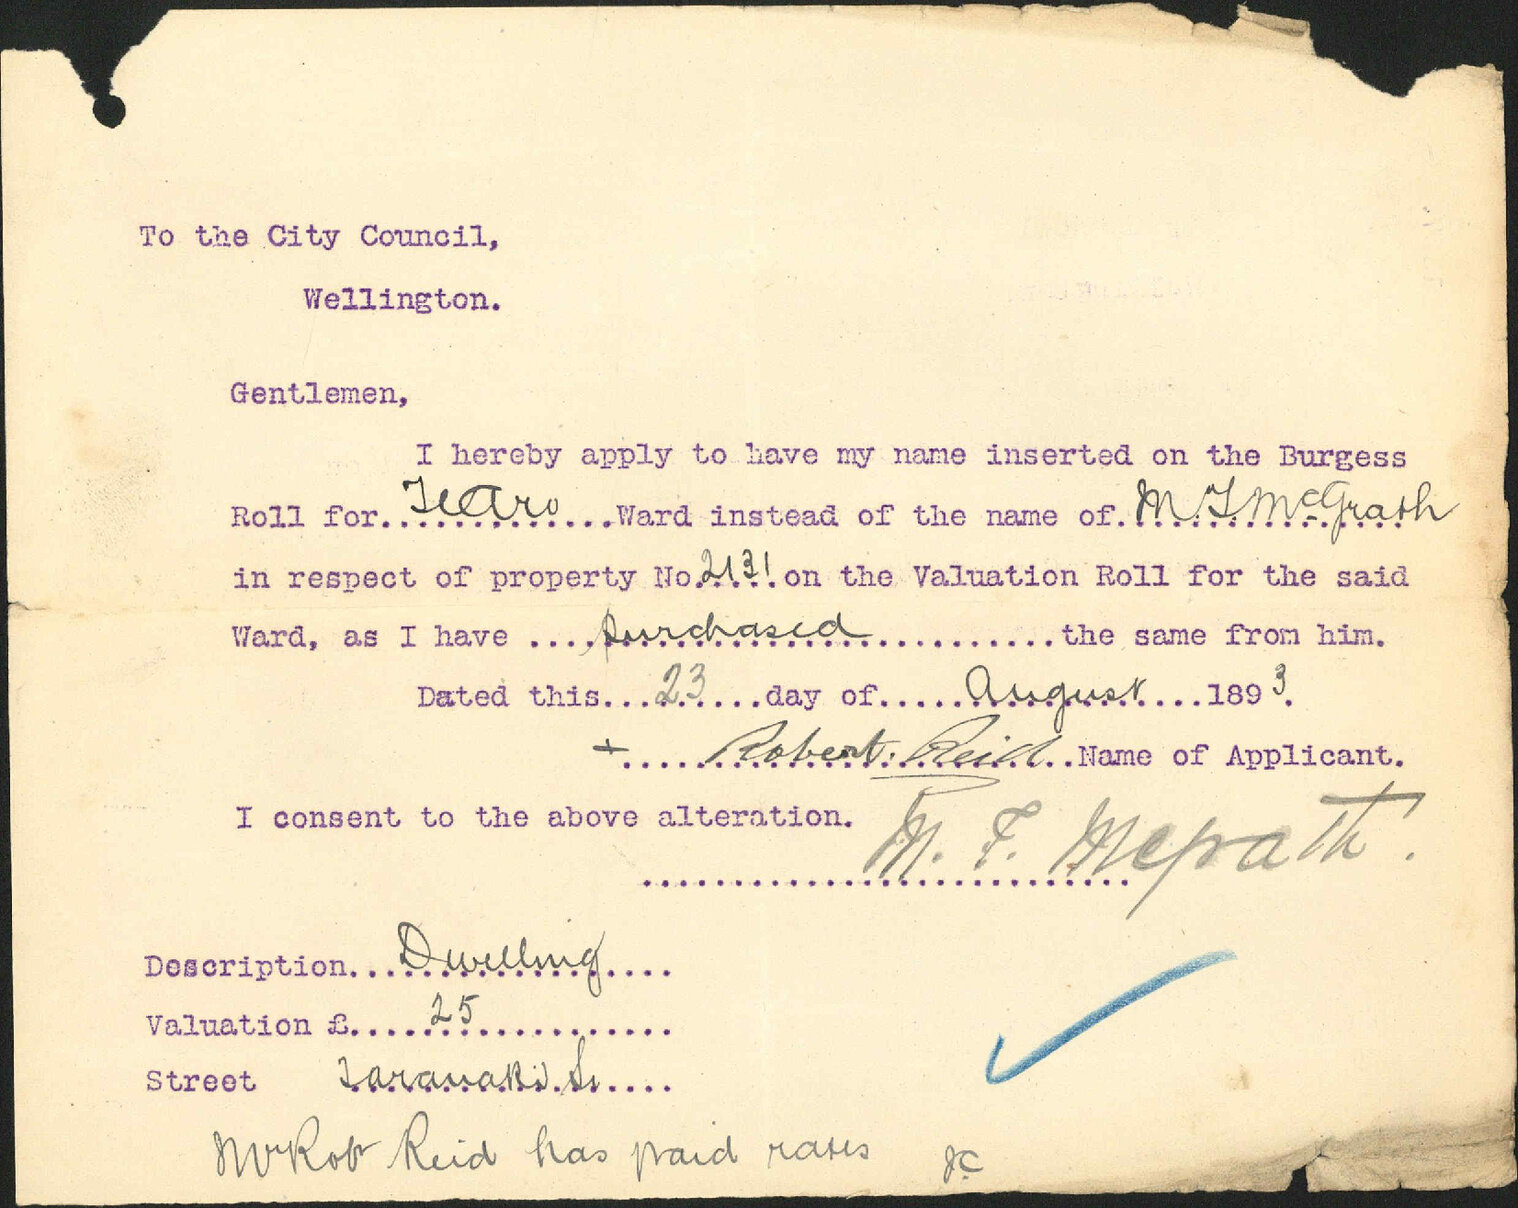 To the City Council,
Wellington.
Gentlemen,
I hereby apply to have my name inserted on the Burgess
Roll for....Te Aro....Ward instead of the name of. M F McGrath
in respect of property No. 2131 on the Valuation Roll for the said
Ward, as I have ....purchased..........the same from him.
Dated this...23....day of.....August....1893.
+ ....Robert Reid..Name of Applicant.
I consent to the above alteration.
M. F. McGrath.
Description...Dwelling....
Valuation £....25..........
Street Taranaki St....
Mr Robt Reid has paid rates JC